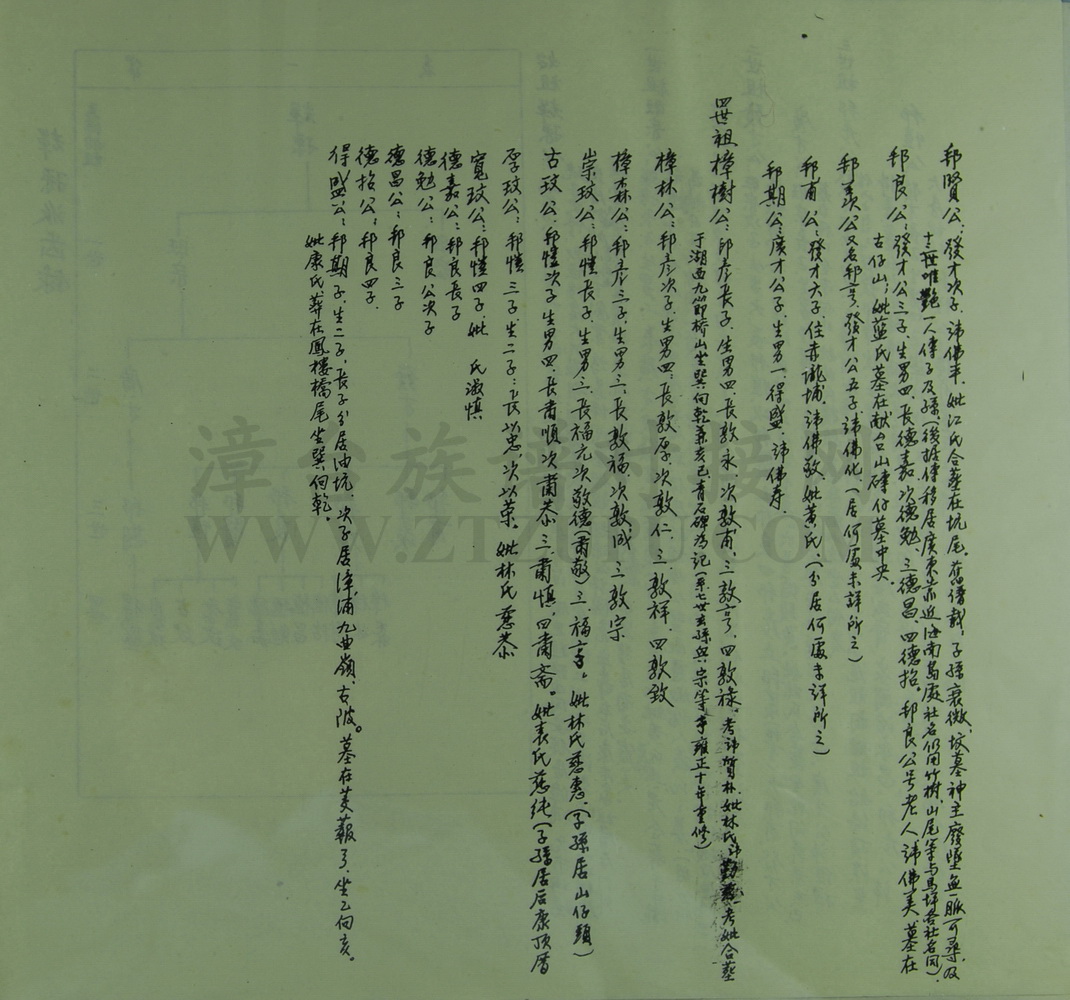 邦賢公：發才次子，諱佛丰，妣江氏合葬在坑尾。舊譜載，子孫衰微，坟墓神主廢墜無脈可尋，及
十三世唯艷一人傳子及孫（後據傳移居廣東亦近海南島處社名仍用竹樹、山尾等与馬坪各社名同）
邦良公：發才公三子，生男四，長德嘉、次德勉、三德昌、四德招。邦良公号老人諱佛美、墓在
古仔山，妣藍氏墓在献台山磚仔墓中央。
邦義公又名邦亨，發才公五子，諱佛化，（居何處未詳所之）
邦甫公：發才六子，住赤嶺埔，諱佛敬，妣黃氏，（分居何處未詳所之）
邦期公：廣才公子，生男一，得盛，諱佛寿。
四世祖樟樹公：邦彥長子，生男四，長敦永，次敦甫，三敦亨，四敦祿。考諱質朴，妣林氏諱勤 考妣合葬
于湖西九節桥山坐巽向乾兼亥巳青石碑为記（系七世玄孫與宗等于雍正十年重修）
樟林公：邦彥次子，生男四，長敦厚，次敦仁，三敦祥，四敦致
樟森公：邦彥三子，生男三，長敦福，次敦成，三敦宗
崇玟公：邦愷長子，生男三，長福元次敬德（肅敬）三，福亨。妣林氏慈惠（子孫居山仔頭）
古玟公：邦愷次子生男四，長肅順次肅恭三肅慎，四肅斋。妣袁氏慈純（子孫居后康顶厝
厚玟公：邦愷三子，生二子：長以忠，次以荣。妣林氏慈恭
寬玟公：邦愷四子，妣 氏淑慎
德嘉公：邦良長子
德勉公：邦良公次子
德昌公：邦良三子
德招公：邦良四子
得盛公：邦期子，生二子，長子分居油坑，次子居漳浦九曲嶺，古陂。墓在 坐乙向亥。
妣康氏葬在鳳樓檔尾坐巽向乾。
漳台族谱对接网
WWW.ZTZUPU.COM